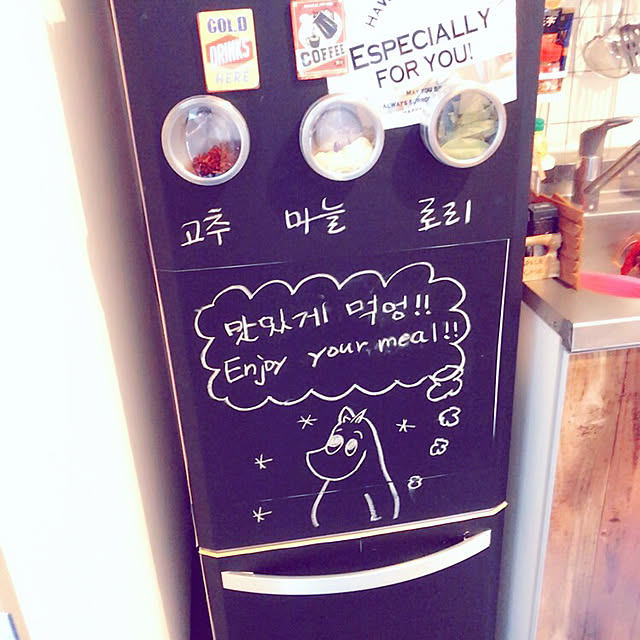 COLD
DRINKS
HERE
COFFEE
HAV
ESPECIALLY
FOR YOU!
MAY YOU
ALWAYS
고추
마늘
로리
맛있게 먹엉!!
Enjoy your meal!!